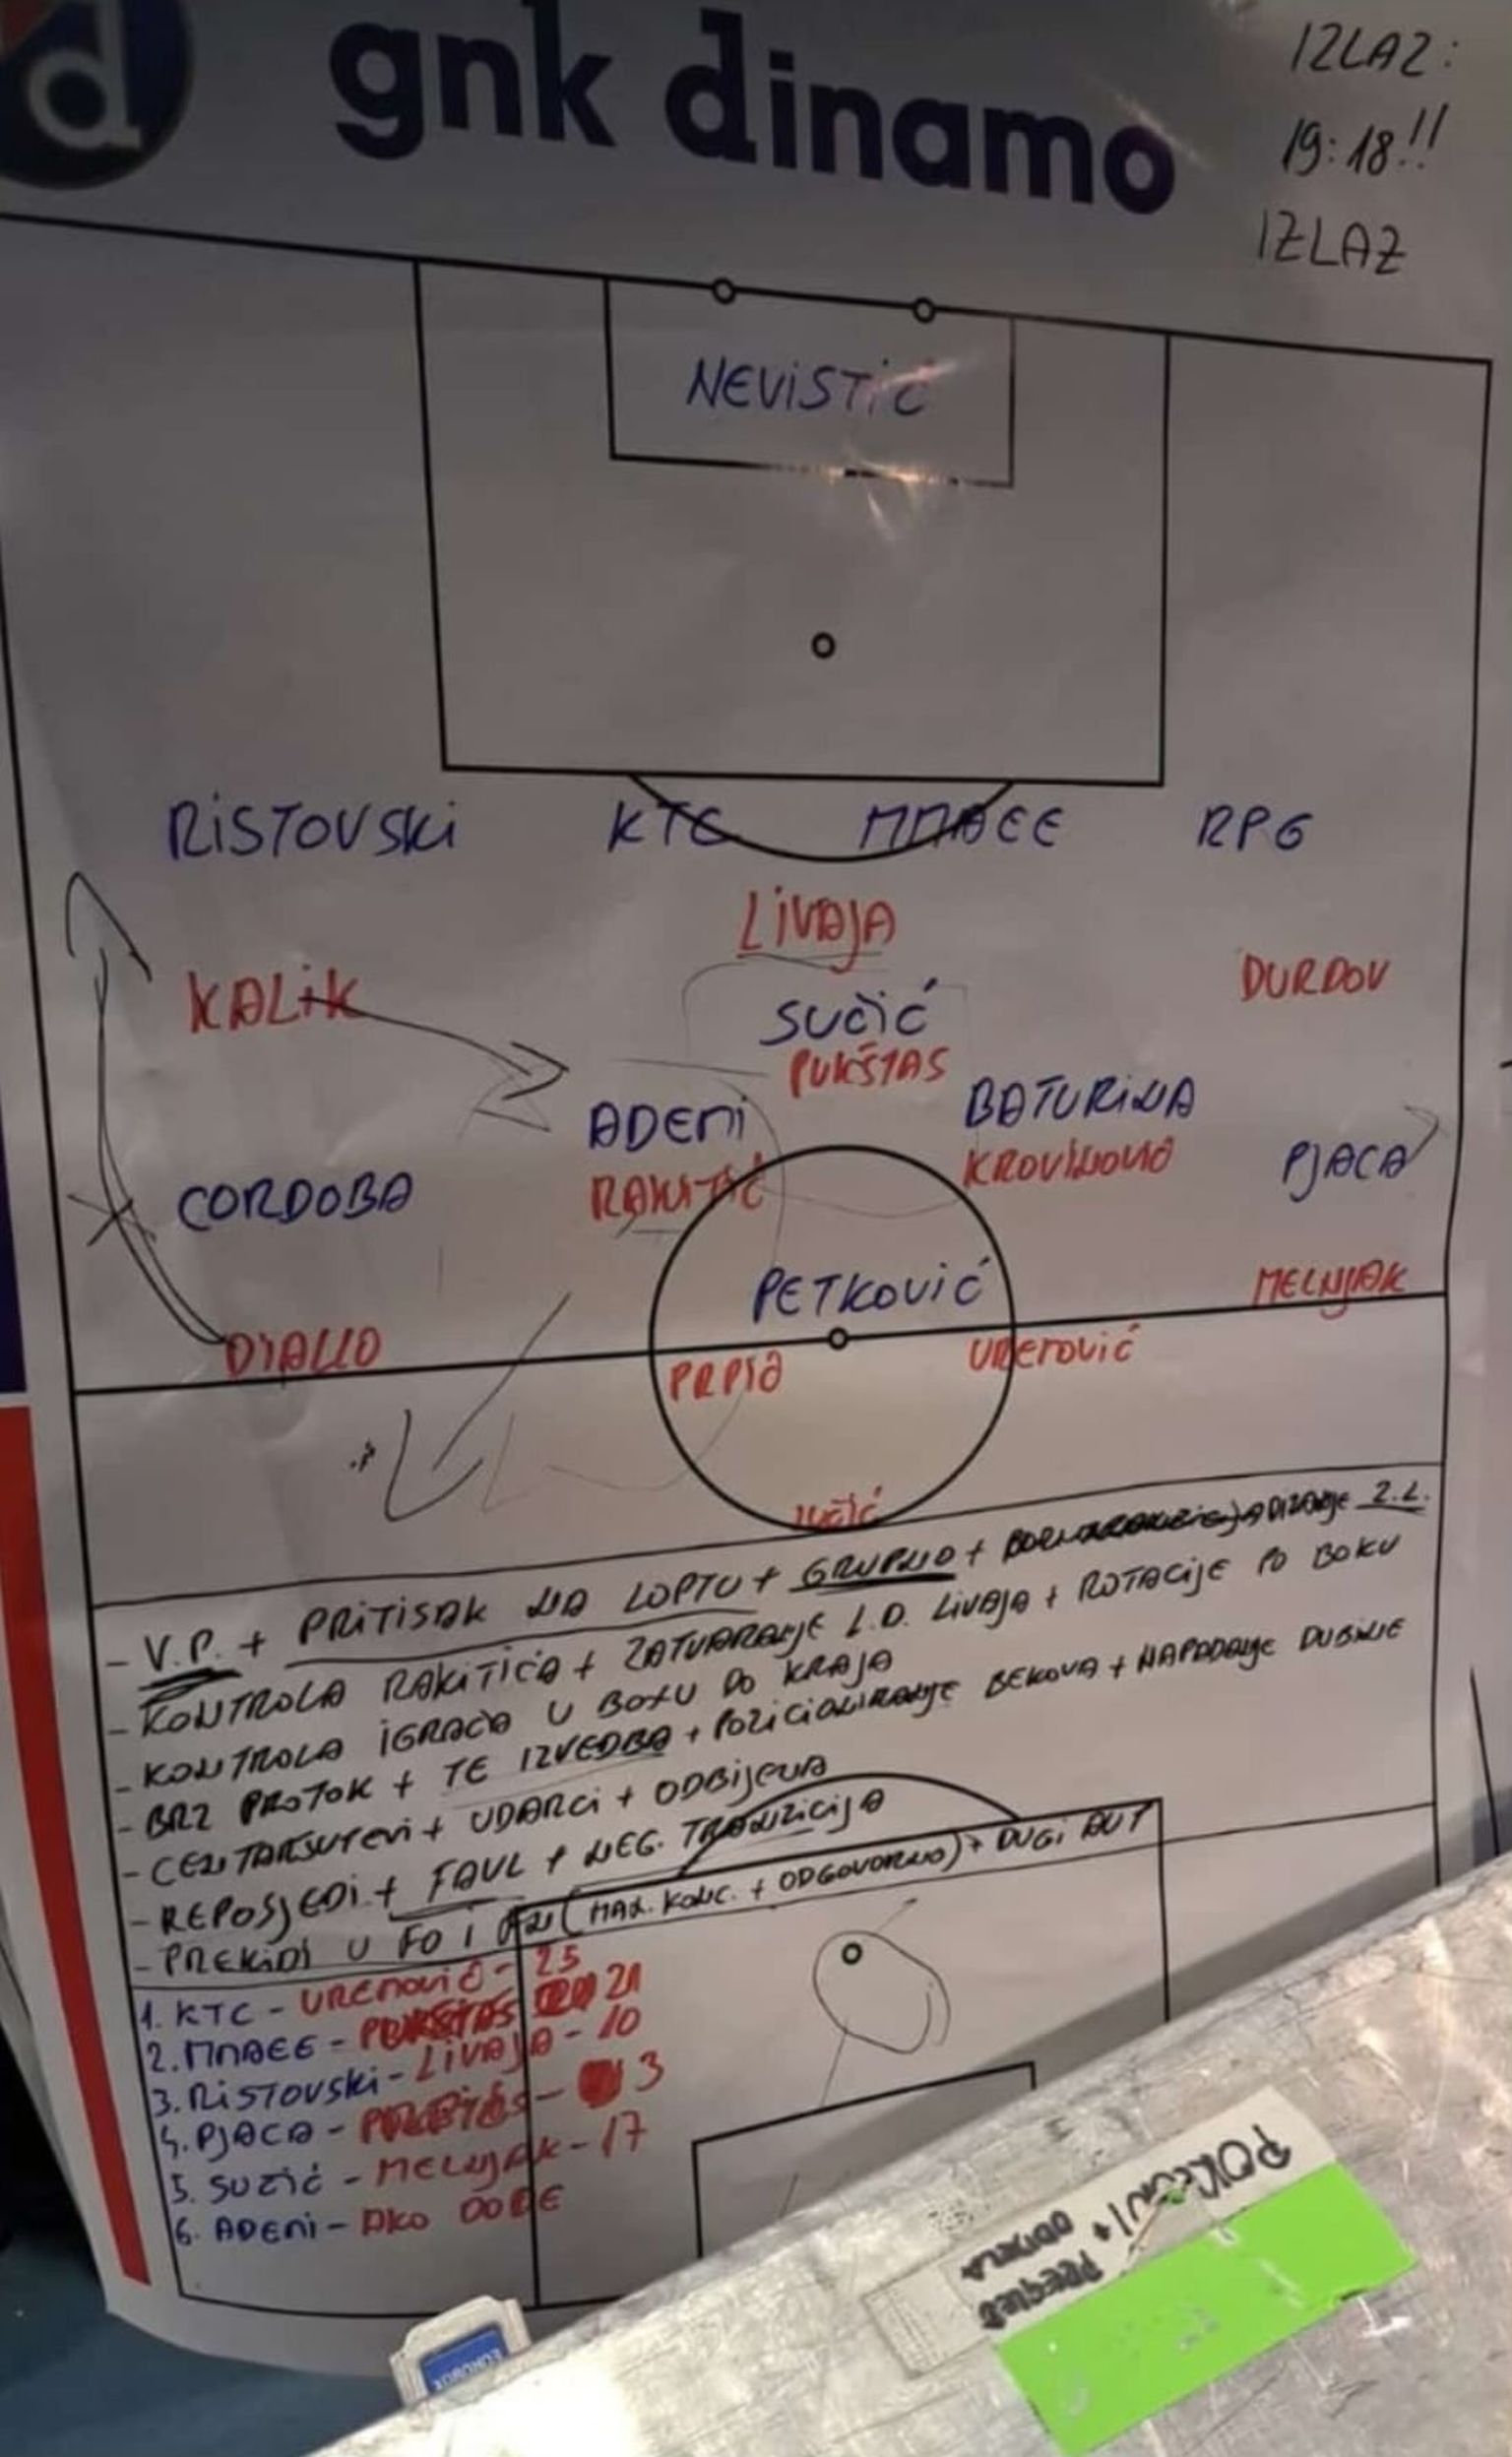 d gnk dinamo
IZLAZ:
19:18!!
IZLAZ
NEVISTIĆ
RISTOVSKI KTC MMAEE RPG
LIVAJA
KALIK DURDOV
SUČIĆ
PUKŠTAS
ADEMI BATURINA
RAKITIĆ KROVINOVIĆ
CORDOBA PJACA
PETKOVIĆ
MELNJAK
DIALLO PRPIĆ UREMOVIĆ
LUČIĆ
- V.P. + PRITISAK NA LOPTU + GRUPNO + DIZANJE Z.L.
- KONTROLA RAKITIĆA + ZATVARANJE L.D. LIVAJA + ROTACIJE PO BOKU
- KONTROLA IGRAČA U BOXU DO KRAJA
- BRZ PROTOK + TE IZVEDBA + POZICIONIRANJE BEKOVA + NAPADANJE DUBINE
- CENTARŠUTEVI + UDARCI + ODBIJENA
- REPOSJEDI + FAUL + NEG. TRANZICIJA
- PREKIDI U FO I (MAX. KONC. + ODGOVORNO) + DUGI AUT
1. KTC - UREMOVIĆ - 25
2. MMAEE - PUKŠTAS 21
3. RISTOVSKI - LIVAJA - 10
4. PJACA - 3
5. SUČIĆ - MELNJAK - 17
6. ADEMI - AKO DOĐE